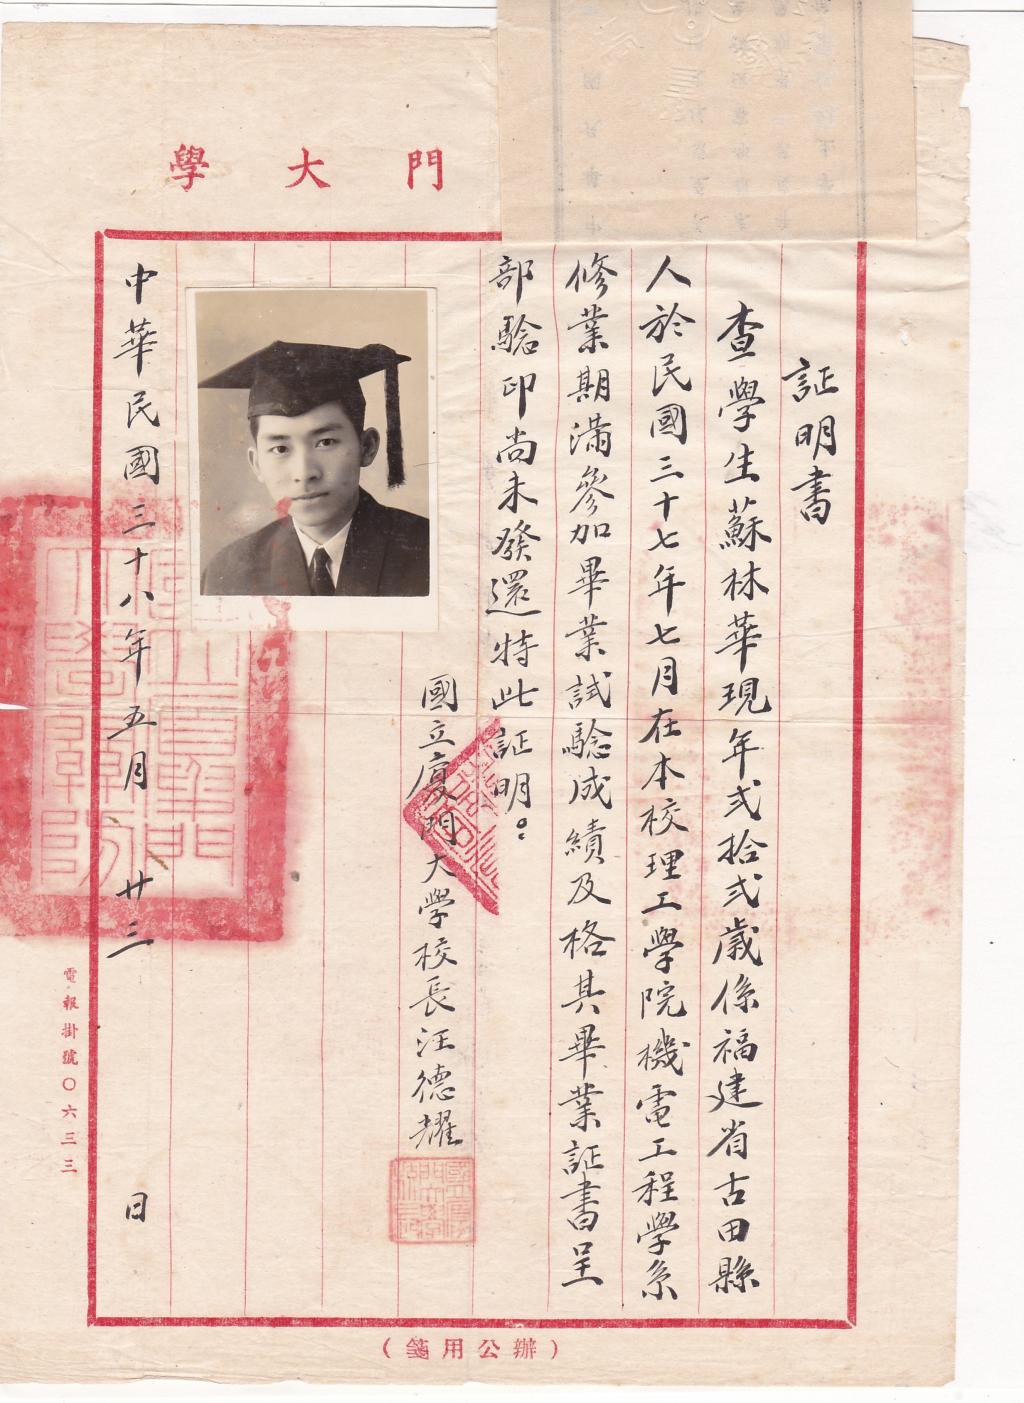 門大學
証明書
查學生蘇林華現年弍拾弍歲係福建省古田縣
人於民國三十七年七月在本校理工學院機電工程學系
修業期滿參加畢業試驗成績及格其畢業証書呈
部驗印尚未發還特此証明。
國立廈門大學校長汪德耀
中華民國三十八年五月廿三日
電報掛號〇六三三
（辦公用箋）